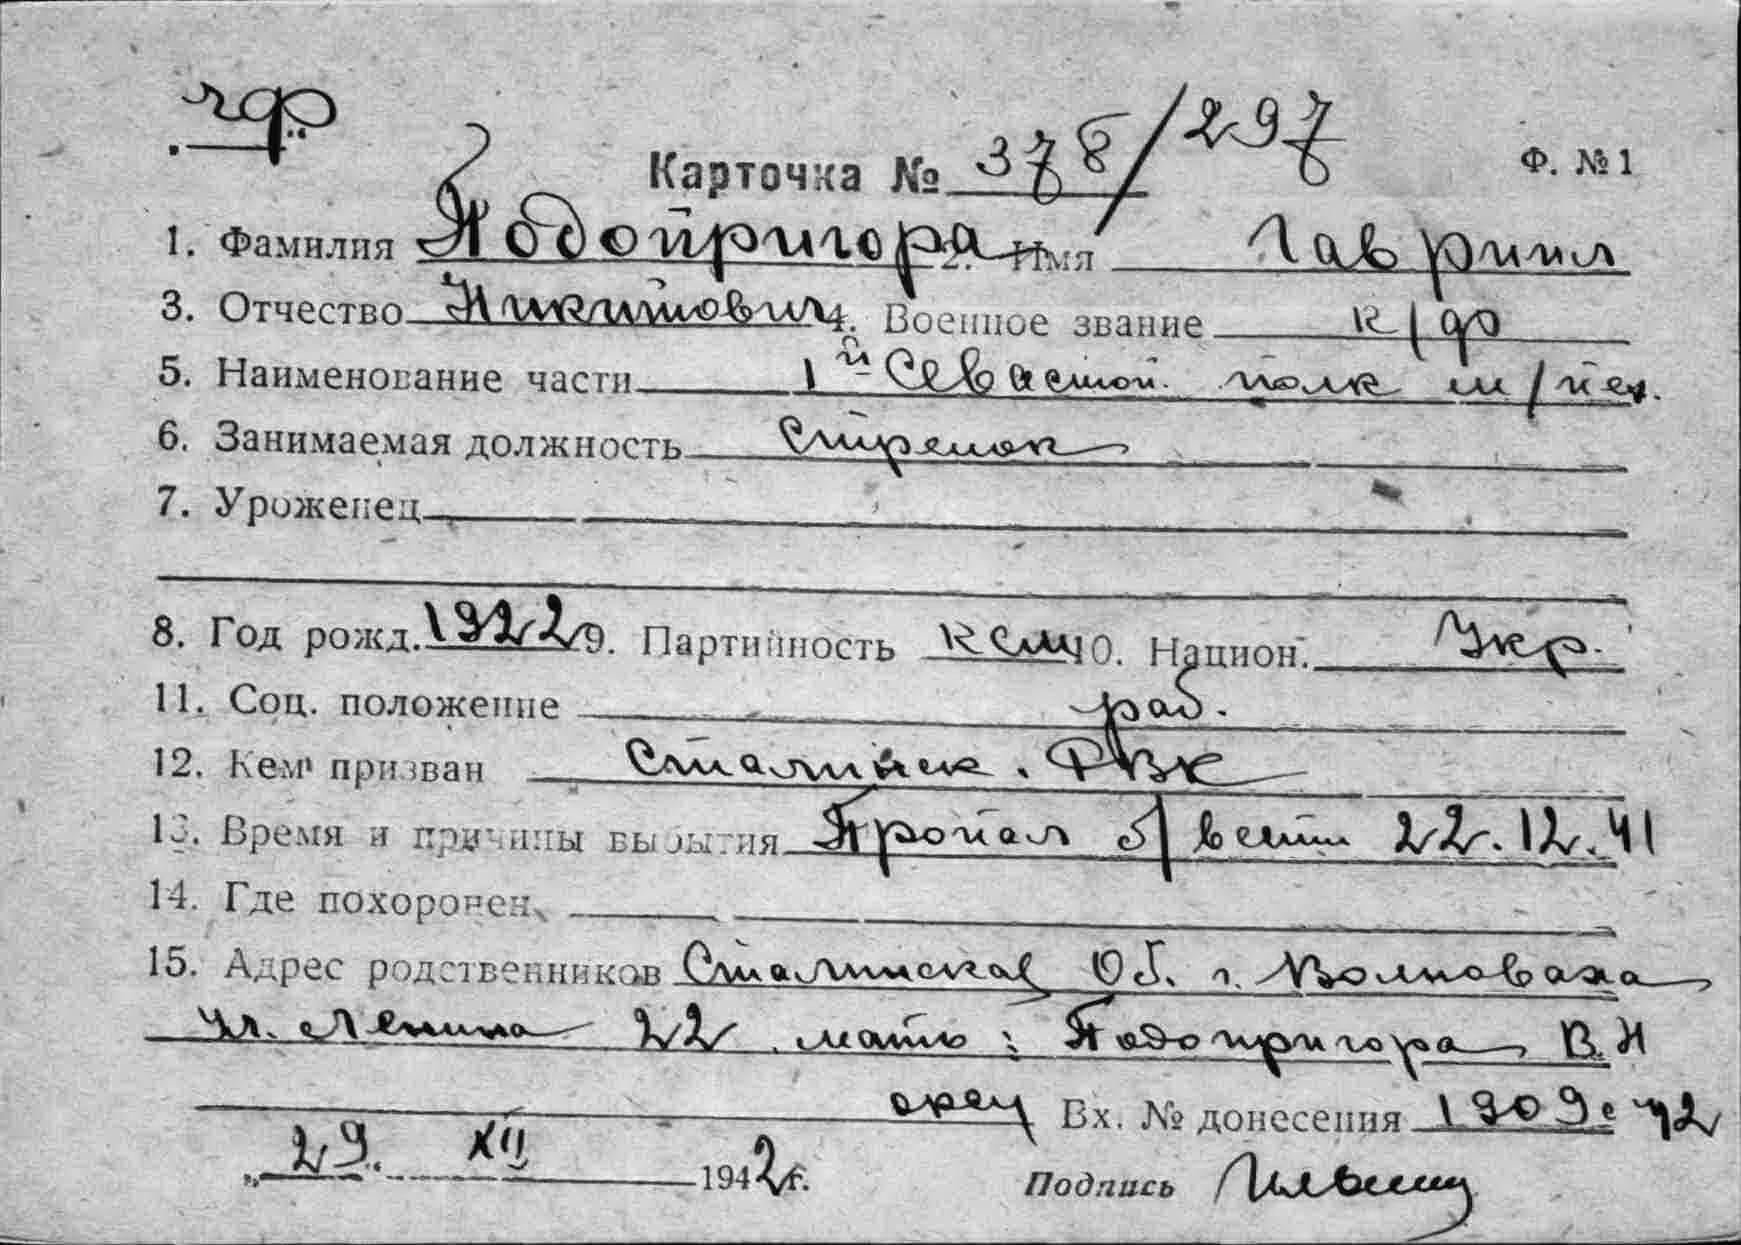 чф
Карточка № 378/297 Ф. № 1
1. Фамилия Подопригора 2. Имя Гавриил
3. Отчество Никитович 4. Военное звание к/ф
5. Наименование части 1й Севастоп. полк м/пех.
6. Занимаемая должность Стрелок
7. Уроженец
8. Год рожд. 1922 9. Партийность ксм 10. Национ. Укр.
11. Соц. положение раб.
12. Кем призван Сталинск. РВК
13. Время и причины выбытия Пропал б/вести 22.12.41
14. Где похоронен
15. Адрес родственников Сталинская Об. г. Волноваха
ул. Ленина 22 мать: Подопригора В.Н
Вх. № донесения 1909с 42
„29. XII 1942г. Подпись